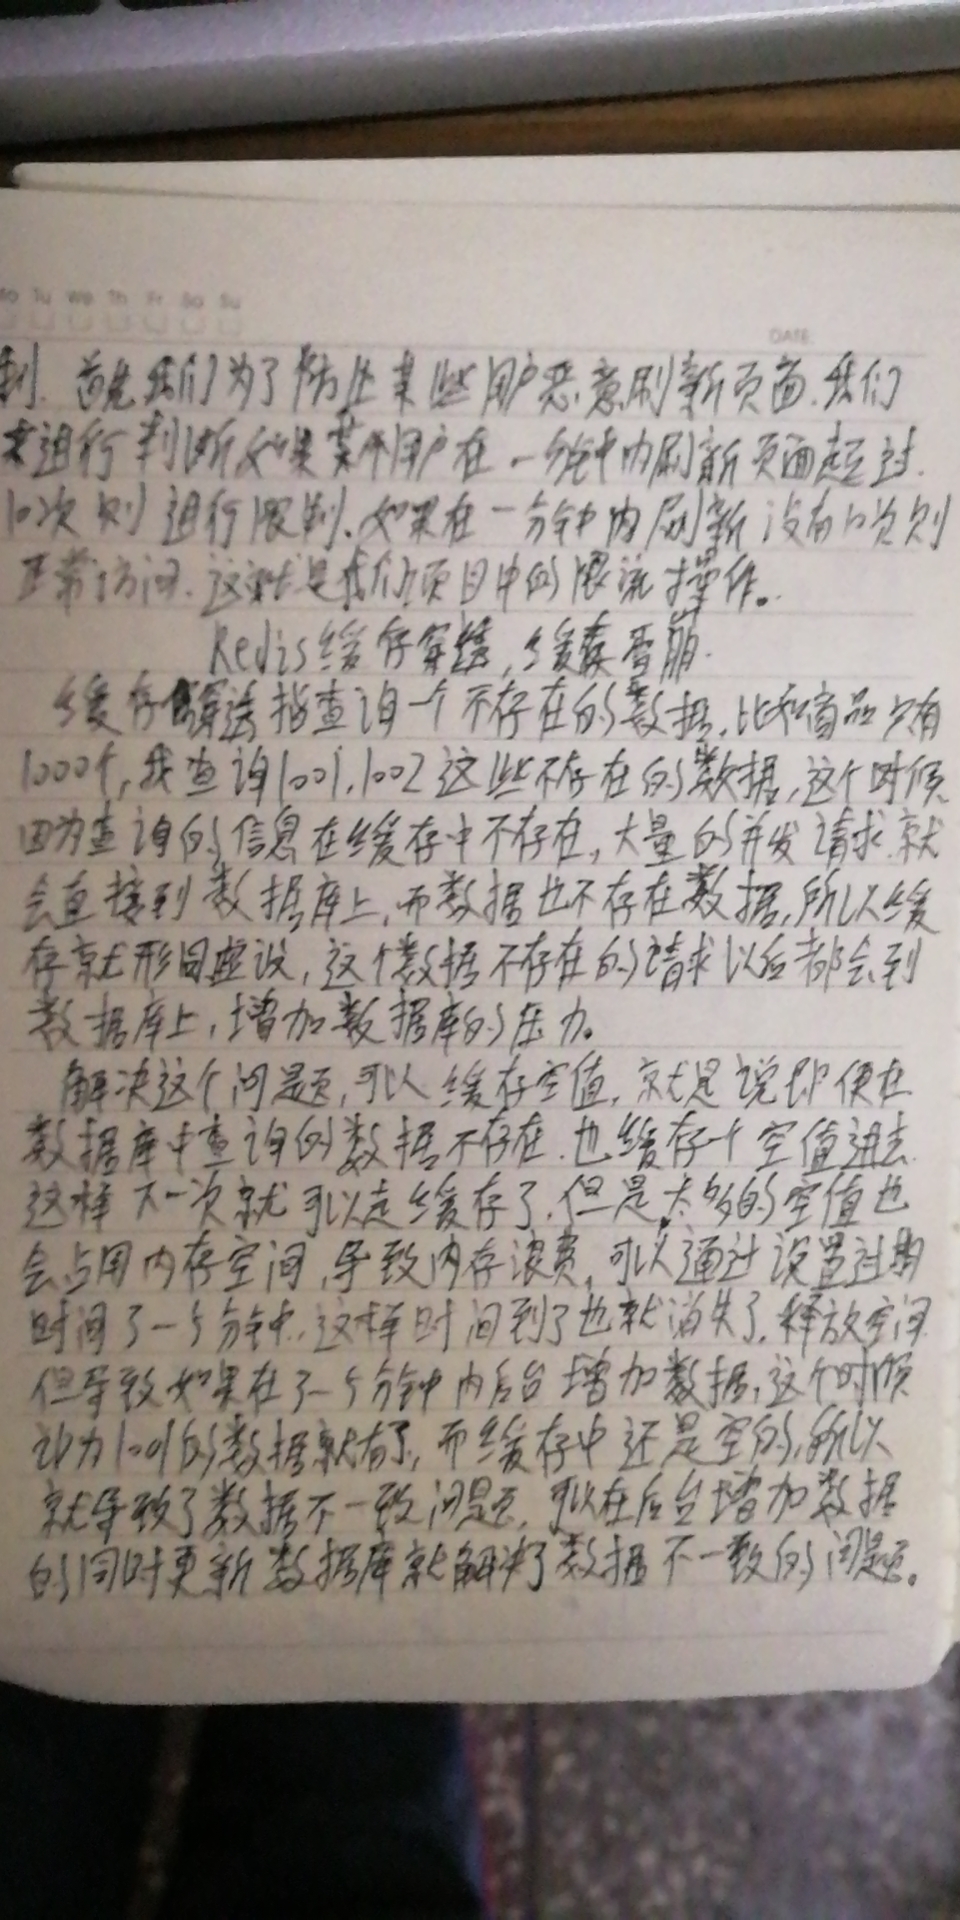 Mo Tu We Th Fr Sa Su
DATE
制. 首先我们为了防止某些用户恶意刷新页面.我们
来进行判断如果某个用户在.一分钟内刷新页面超过.
10次则 进行限制.如果在一分钟内刷新没有10次则
正常访问.这就是我们项目中的限流操作。
Redis缓存穿透,缓存雪崩.
缓存穿透指查询一个不存在的数据,比如商品只有
1000个,我查询1001.1002这些不存在的数据,这个时候
因为查询的信息在缓存中不存在,大量的并发请求就
会直接到数据库上,而数据也不存在数据,所以缓
存就形同虚设,这个数据不存在的请求以后都会到
数据库上,增加数据库的压力。
解决这个问题,可以缓存空值,就是说即便在
数据库中查询的数据不存在.也缓存个空值进去.
这样下一次就可以走缓存了.但是太多的空值也
会占用内存空间,导致内存浪费,可以通过设置过期
时间了一5分钟,这样时间到了也就消失了,释放空间
但导致如果在了一5分钟内后台增加数据,这个时候
认为1001的数据就有了,而缓存中还是空的,所以
就导致了数据不一致问题,可以在后台增加数据
的同时更新数据库就解决了数据不一致的问题。